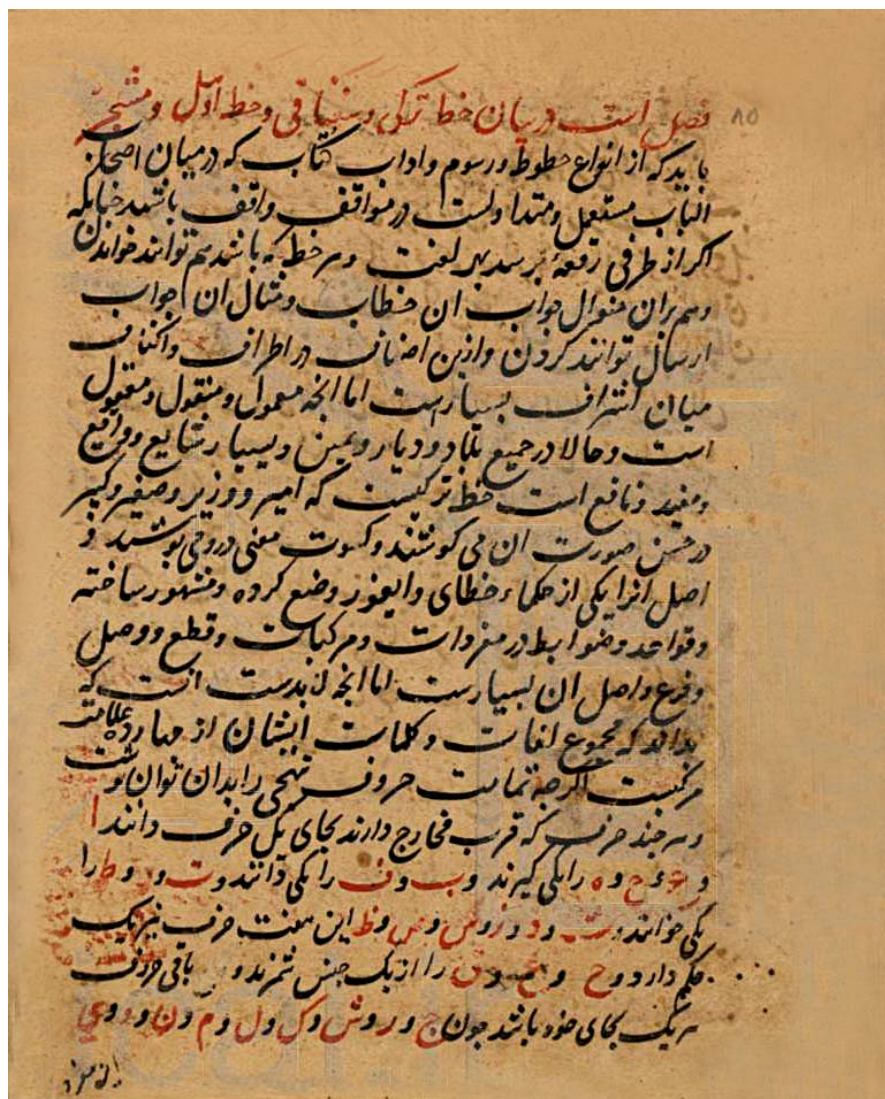 فصل است در بیان خط ترکی و سیاقی و خط اوصل و مشجر ۸۵
باید که از انواع خطوط و رسوم و اداب کتاب که در میان اصحاب
الباب مستعمل و متداولست در مواقف واقف باشند چنانکه
اکر از طرفی رقعهٔ برسد بهر لغت و هر خط که باشد هم توانند خواندن
و هم بران منوال جواب ان خطاب و مثال ان جواب
ارسال توانند کردن و ازین اصناف در اطراف و اکناف
میان اشراف بسیار است اما انچه معمول و منقول و مقبول
است و حالا در جمیع بلاد و دیار و یمین و یسار شایع و واقع
و مفید و نافع است خط ترکیست که امیر و وزیر و صغیر و کبیر
در حسن صورت ان می کوشند و کسوت معنی در وی پوشند و
اصل انرا یکی از حکماء خطای و ایغور وضع کرده و مشهور ساخته
و قواعد و ضوابط در مفردات و مرکبات و قطع و وصل
و فرع و اصل ان بسیارست اما انچه لابدست انست که
بداند که مجموع لغات و کلمات ایشان از چهارده علامت
مرکبست اکرچه تمامت حروف تهجی را بدان توان نوشت
و هر چند حرف که قرب مخارج دارند بجای یک حرف دانند ا
و ع و ح و ه را یکی کیرند و ب و ف را یکی دانند و ت و د و ط را
یکی خوانند و ث و ذ و ز و س و ص و ض و ظ این هفت حرف نیز یک
حکم دارد و خ و غ و ق را از یک جنس شمرند و باقی حروف
هر یک بجای خود باشد چون ج و ر و ش و ک و ل و م و ن و و و ی